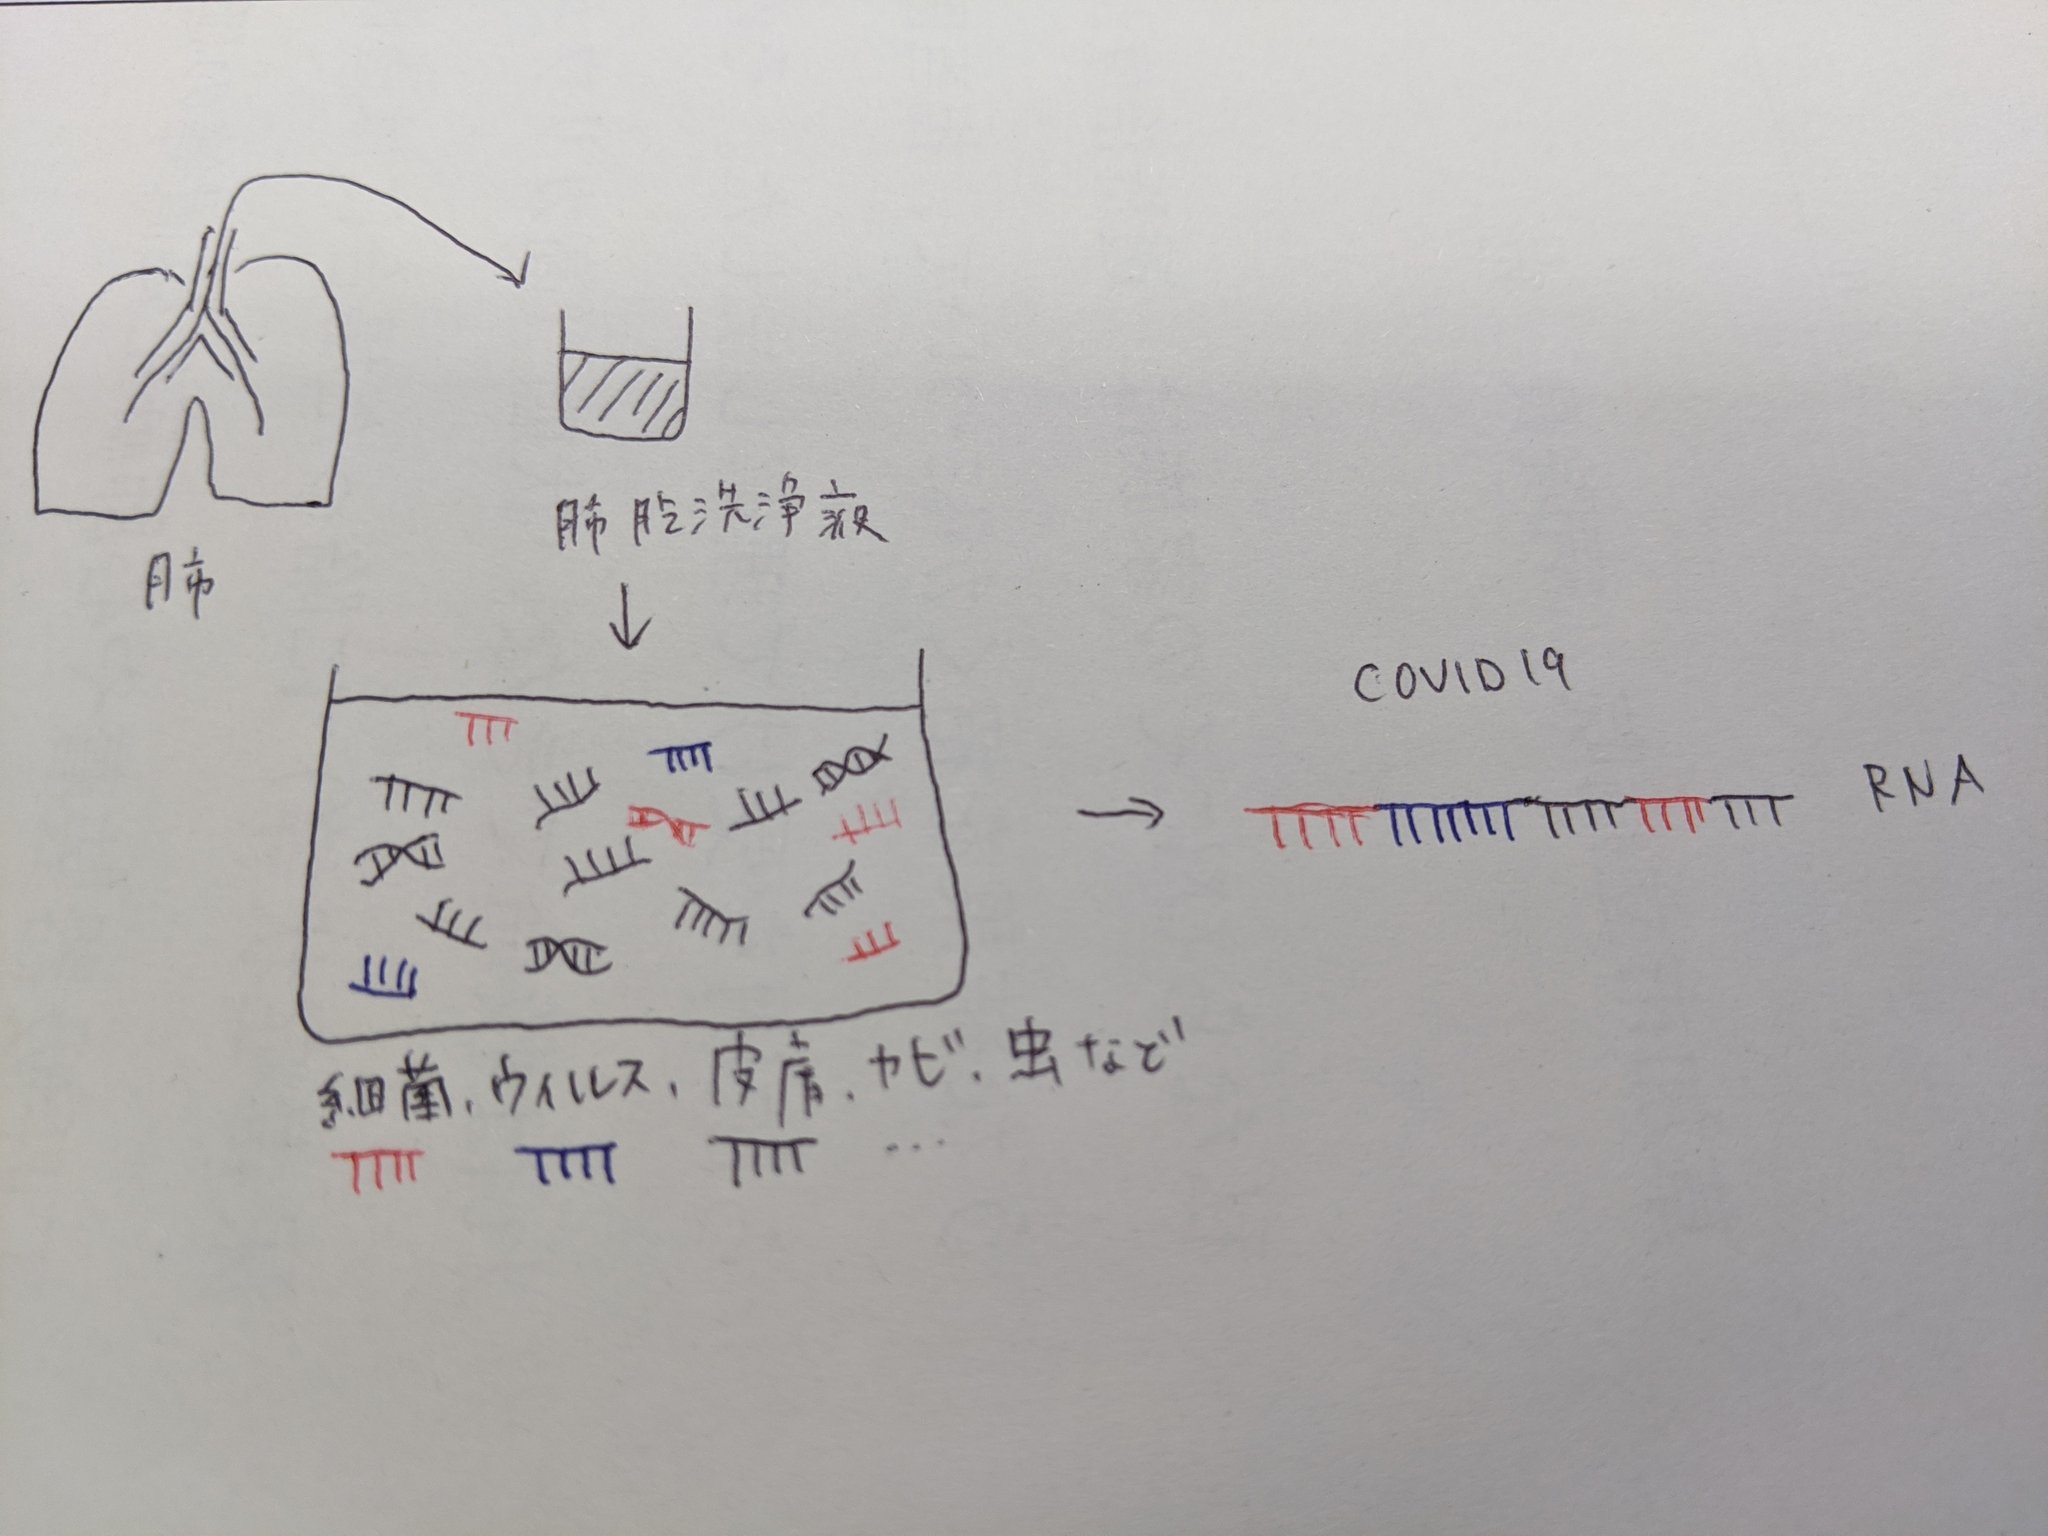 肺
肺腔洗浄液
COVID19
RNA
細菌、ウィルス、皮膚、カビ、虫など
...